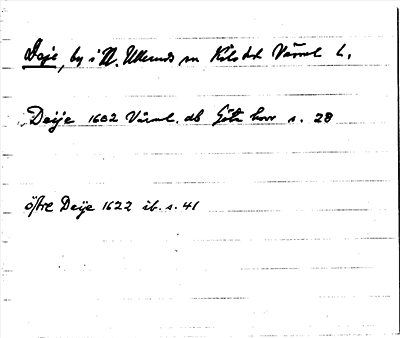 Deje, by i N. Ulleruds sn Kils hd Värml l.
Deije 1602 Värml. db Göta hovr s. 28
östre Deije 1622 ib. s. 41